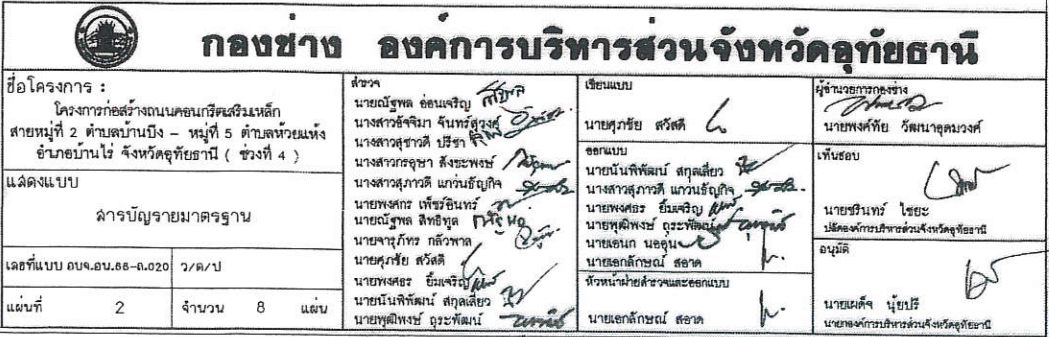 กองช่าง องค์การบริหารส่วนจังหวัดอุทัยธานี
ชื่อโครงการ :
โครงการก่อสร้างถนนคอนกรีตเสริมเหล็ก
สายหมู่ที่ 2 ตำบลบ้านบึง - หมู่ที่ 5 ตำบลห้วยแห้ง
อำเภอบ้านไร่ จังหวัดอุทัยธานี ( ช่วงที่ 4 )
แสดงแบบ
สารบัญรายมาตรฐาน
เลขที่แบบ อบจ.อน.66-ถ.020 ว/ด/ป
แผ่นที่ 2 จำนวน 8 แผ่น
สำรวจ
นายณัฐพล อ่อนเจริญ
นางสาวอัจจิมา จันทร์สุวงศ์
นางสาวสุชาวดี ปรีชา
นางสาวกรอุษา สังขะพงษ์
นางสาวสุภาวดี แกว่นธัญกิจ
นายพงศกร เพ็ชรอินทร์
นายณัฐพล สิทธิทูล
นายจารุภัทร กลัวพาล
นายศุภชัย สวัสดี
นายพงศธร ยิ้มเจริญ
นายนันพิพัฒน์ สกุลเลี่ยว
นายพุฒิพงษ์ ถุระพัฒน์
เขียนแบบ
นายศุภชัย สวัสดี
ออกแบบ
นายนันพิพัฒน์ สกุลเลี่ยว
นางสาวสุภาวดี แกว่นธัญกิจ
นายพงศธร ยิ้มเจริญ
นายพุฒิพงษ์ ถุระพัฒน์
นายเอนก นออุ่น
นายเอกลักษณ์ สอาด
หัวหน้าฝ่ายสำรวจและออกแบบ
นายเอกลักษณ์ สอาด
ผู้อำนวยการกองช่าง
นายพงศ์ทัย วัฒนาอุดมวงศ์
เห็นชอบ
นายชรินทร์ ไชยะ
ปลัดองค์การบริหารส่วนจังหวัดอุทัยธานี
อนุมัติ
นายเผด็จ นุ้ยปรี
นายกองค์การบริหารส่วนจังหวัดอุทัยธานี